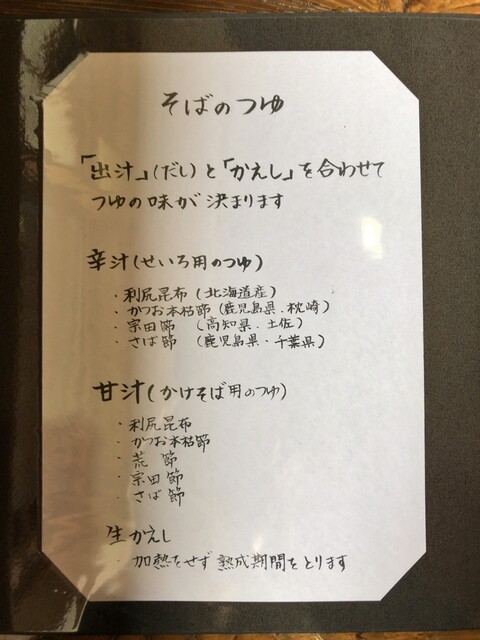 そばのつゆ
「出汁」(だし)と「かえし」を合わせて
つゆの味が決まります
辛汁(せいろ用のつゆ)
・利尻昆布(北海道産)
・かつお本枯節(鹿児島県・枕崎)
・宗田節(高知県・土佐)
・さば節(鹿児島県・千葉県)
甘汁(かけそば用のつゆ)
・利尻昆布
・かつお本枯節
・荒節
・宗田節
・さば節
生かえし
・加熱をせず熟成期間をとります